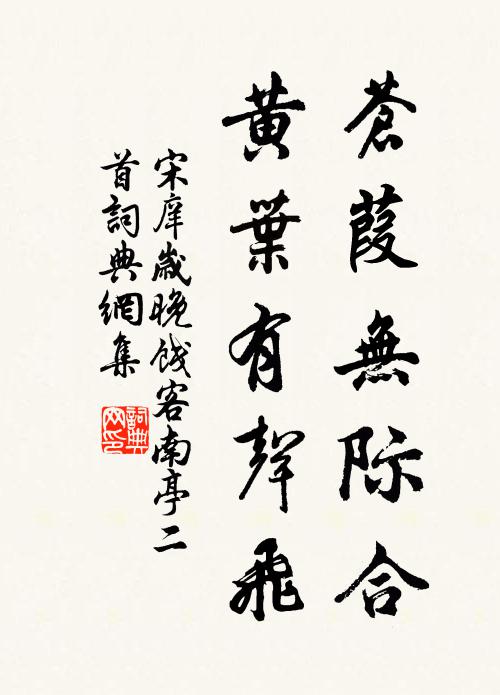 蒼葭無际合
黃葉有聲飛
宋庠歲晚餞客南亭二
首詞典網集
詞典
网印